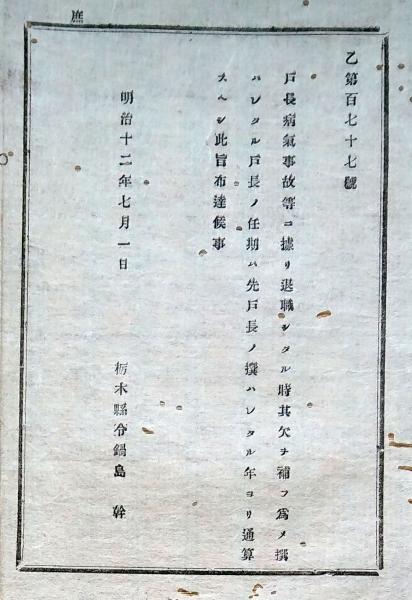 庶
乙第百七十七號
戸長病氣事故等ニ據リ退職シタル時其欠ヲ補フ爲メ撰
ハレタル戸長ノ任期ハ先戸長ノ撰ハレタル年ヨリ通算
スヘシ此旨布達候事
明治十二年七月一日
栃木縣令鍋島幹